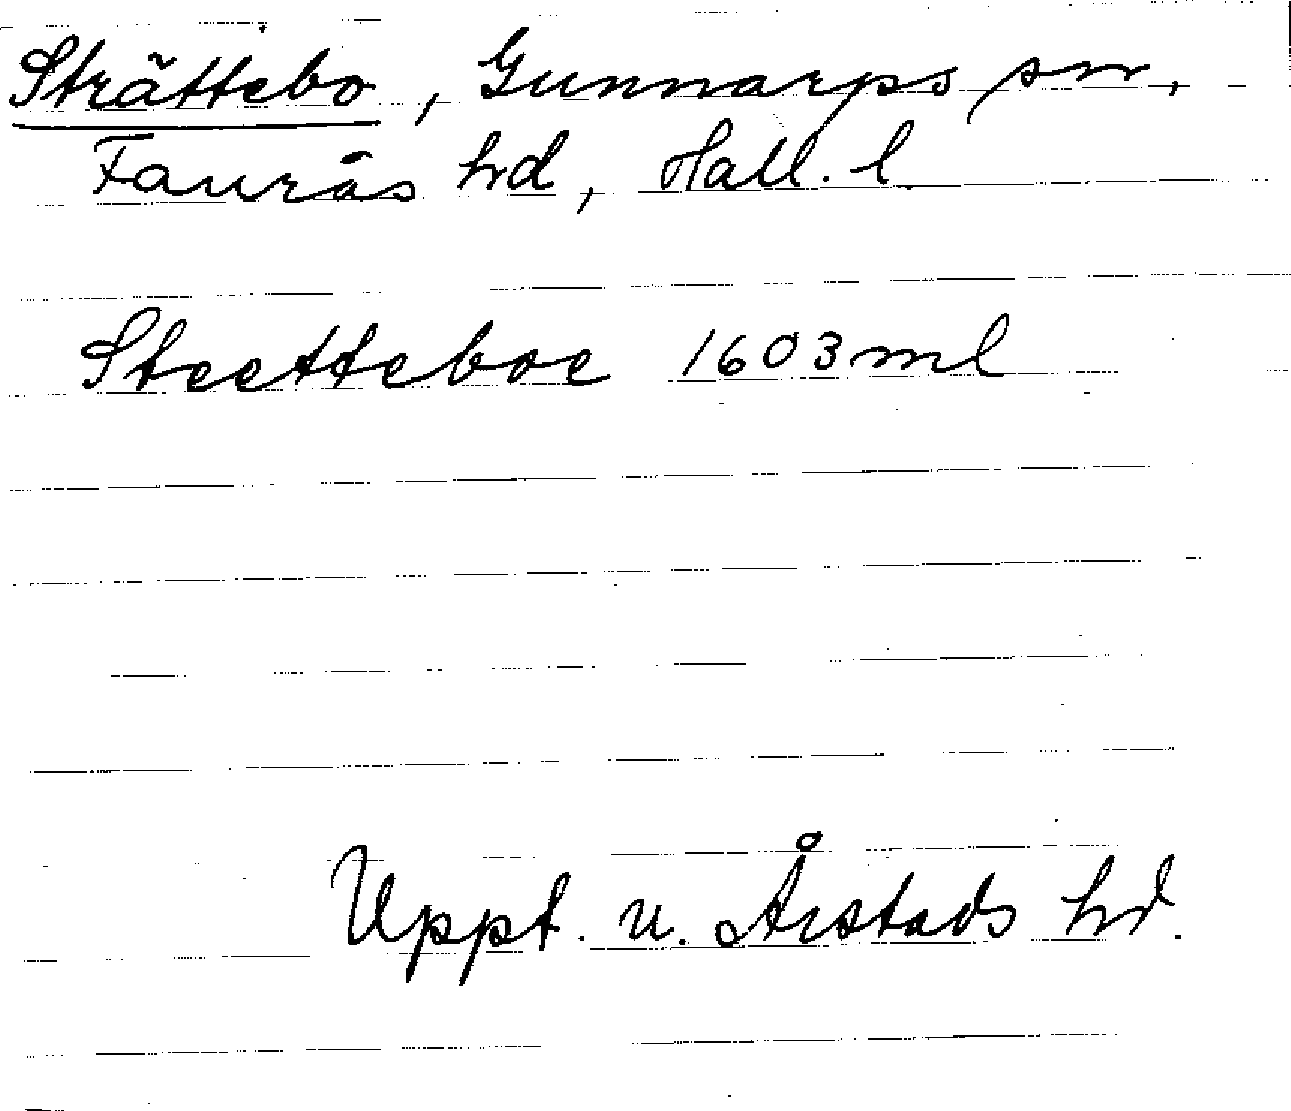 Strättebo, Gunnarps sn,
Faurås hd, Hall. l
Steetteboe 1603 ml
Uppt. u. Årstads hd.